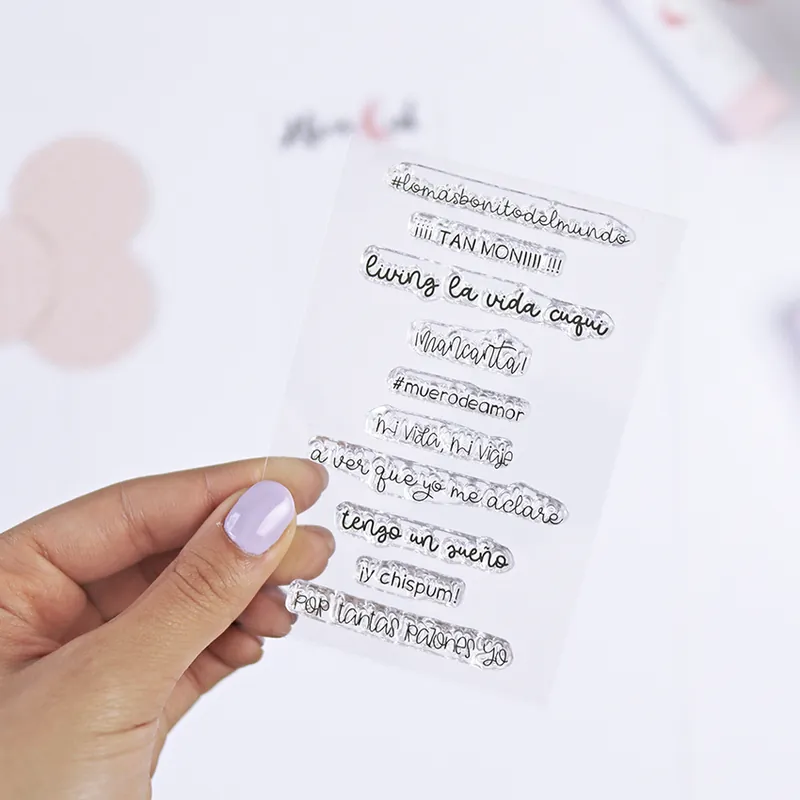 #lomásbonitodelmundo
¡¡¡¡ TAN MONIIII !!!
living la vida cuqui
¡mancanta!
#muerodeamor
mi vida, mi viaje
a ver que yo me aclare
tengo un sueño
¡y chispum!
por tantas razones yo